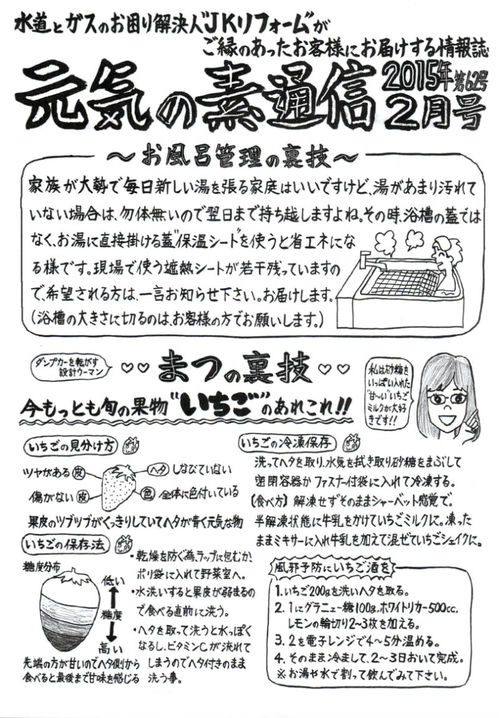 水道とガスのお困り解決人"JKリフォーム"が
ご縁のあったお客様にお届けする情報誌
元気の素通信
2015年第62号
2月号
～お風呂管理の裏技～
家族が大勢で毎日新しい湯を張る家庭はいいですけど、湯があまり汚れて
いない場合は、勿体無いので翌日まで持ち越しますよね。その時、浴槽の蓋では
なく、お湯に直接掛ける蓋"保温シード"を使うと省エネにな
る様です。現場で使う遮熱シートが若干残っていますの
で、希望される方は、一言お知らせ下さい。お届けします。
(浴槽の大きさに切るのは、お客様の方でお願いします。)
ダンプカーを転がす
設計ウーマン
♡♡まつの裏技♡♡
今もっとも旬の果物"いちご"のあれこれ!!
私は砂糖を
いっぱい入れた
"甘～い"いちご
ミルクが大好
きです!!
いちごの見分け方
ツヤがある 皮
ヘタ しなびていない
傷がない 皮
色 全体に色付いている
果皮のツブツブがくっきりしていてヘタが青く元気な物
いちごの保存法
糖度分布
低い
糖度
高い
先端の方が甘いのでヘタ側から
食べると最後まで甘味を感じる
・乾燥を防ぐ為、ラップに包むか、
ポリ袋に入れて野菜室へ。
・水洗いすると果皮が弱まるの
で食べる直前に洗う。
・ヘタを取って洗うと水っぽく
なるし、ビタミンCが流れて
しまうのでヘタ付きのまま
洗う事。
いちごの冷凍保存
洗ってヘタを取り、水気を拭き取り砂糖をまぶして
密閉容器かファスナー付袋に入れて冷凍する。
(食べ方) 解凍せずそのままシャーベット感覚で。
半解凍状態に牛乳をかけていちごミルクに。凍った
ままミキサーに入れ牛乳を加えて混ぜていちごシェイクに。
風邪予防にいちご酒を
1.いちご200gを洗いヘタを取る。
2.1にグラニュー糖100g、ホワイトリカー500cc、
レモンの輪切り2～3枚を加える。
3.2を電子レンジで4～5分温める。
4.そのまま冷まして、2～3日おいて完成。
※お湯や水で割って飲んでみて下さい。